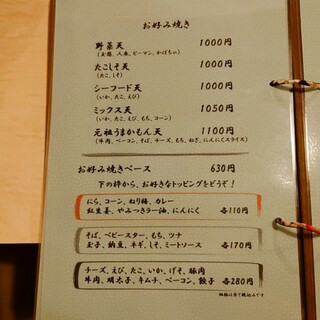 お好み焼き
野菜天 1000円
(玉葱、人参、ピーマン、かぼちゃ)
たこしそ天 1000円
(たこ、しそ)
シーフード天 1000円
(いか、たこ、えび)
ミックス天 1050円
(いか、たこ、えび、もち、コーン)
元祖うまかもん天 1100円
(牛肉、ベーコン、そば、チーズ、もち、ねぎ、にんにくスライス)
お好み焼きベース 630円
下の枠から、お好きなトッピングをどうぞ！
にら、コーン、ねり梅、カレー
紅生姜、やみつきラー油、にんにく 各110円
そば、ベビースター、もち、ツナ
玉子、納豆、ネギ、しそ、ミートソース 各170円
チーズ、えび、たこ、いか、げそ、豚肉
牛肉、明太子、キムチ、ベーコン、餃子 各280円
価格は全て税込みです